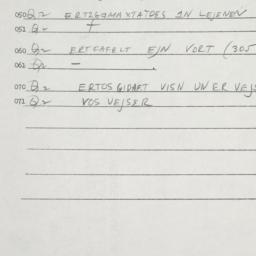 050 Q2 ERTZGOMAXTATDES IN LEJENEN
051 Q2 †
060 Q2 ERTCAFELT EJN VORT (305
061 Q2 —
070 Q2 ERTOSGIDART VISN UN ER VEJS
071 Q2 VOS VEJSER